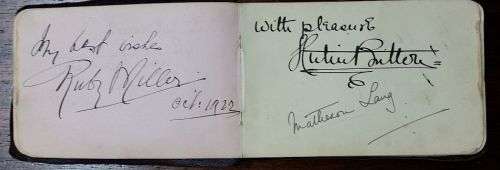 My best wishes
Ruby Miller
Oct. 1922
With pleasure
Matheson Lang